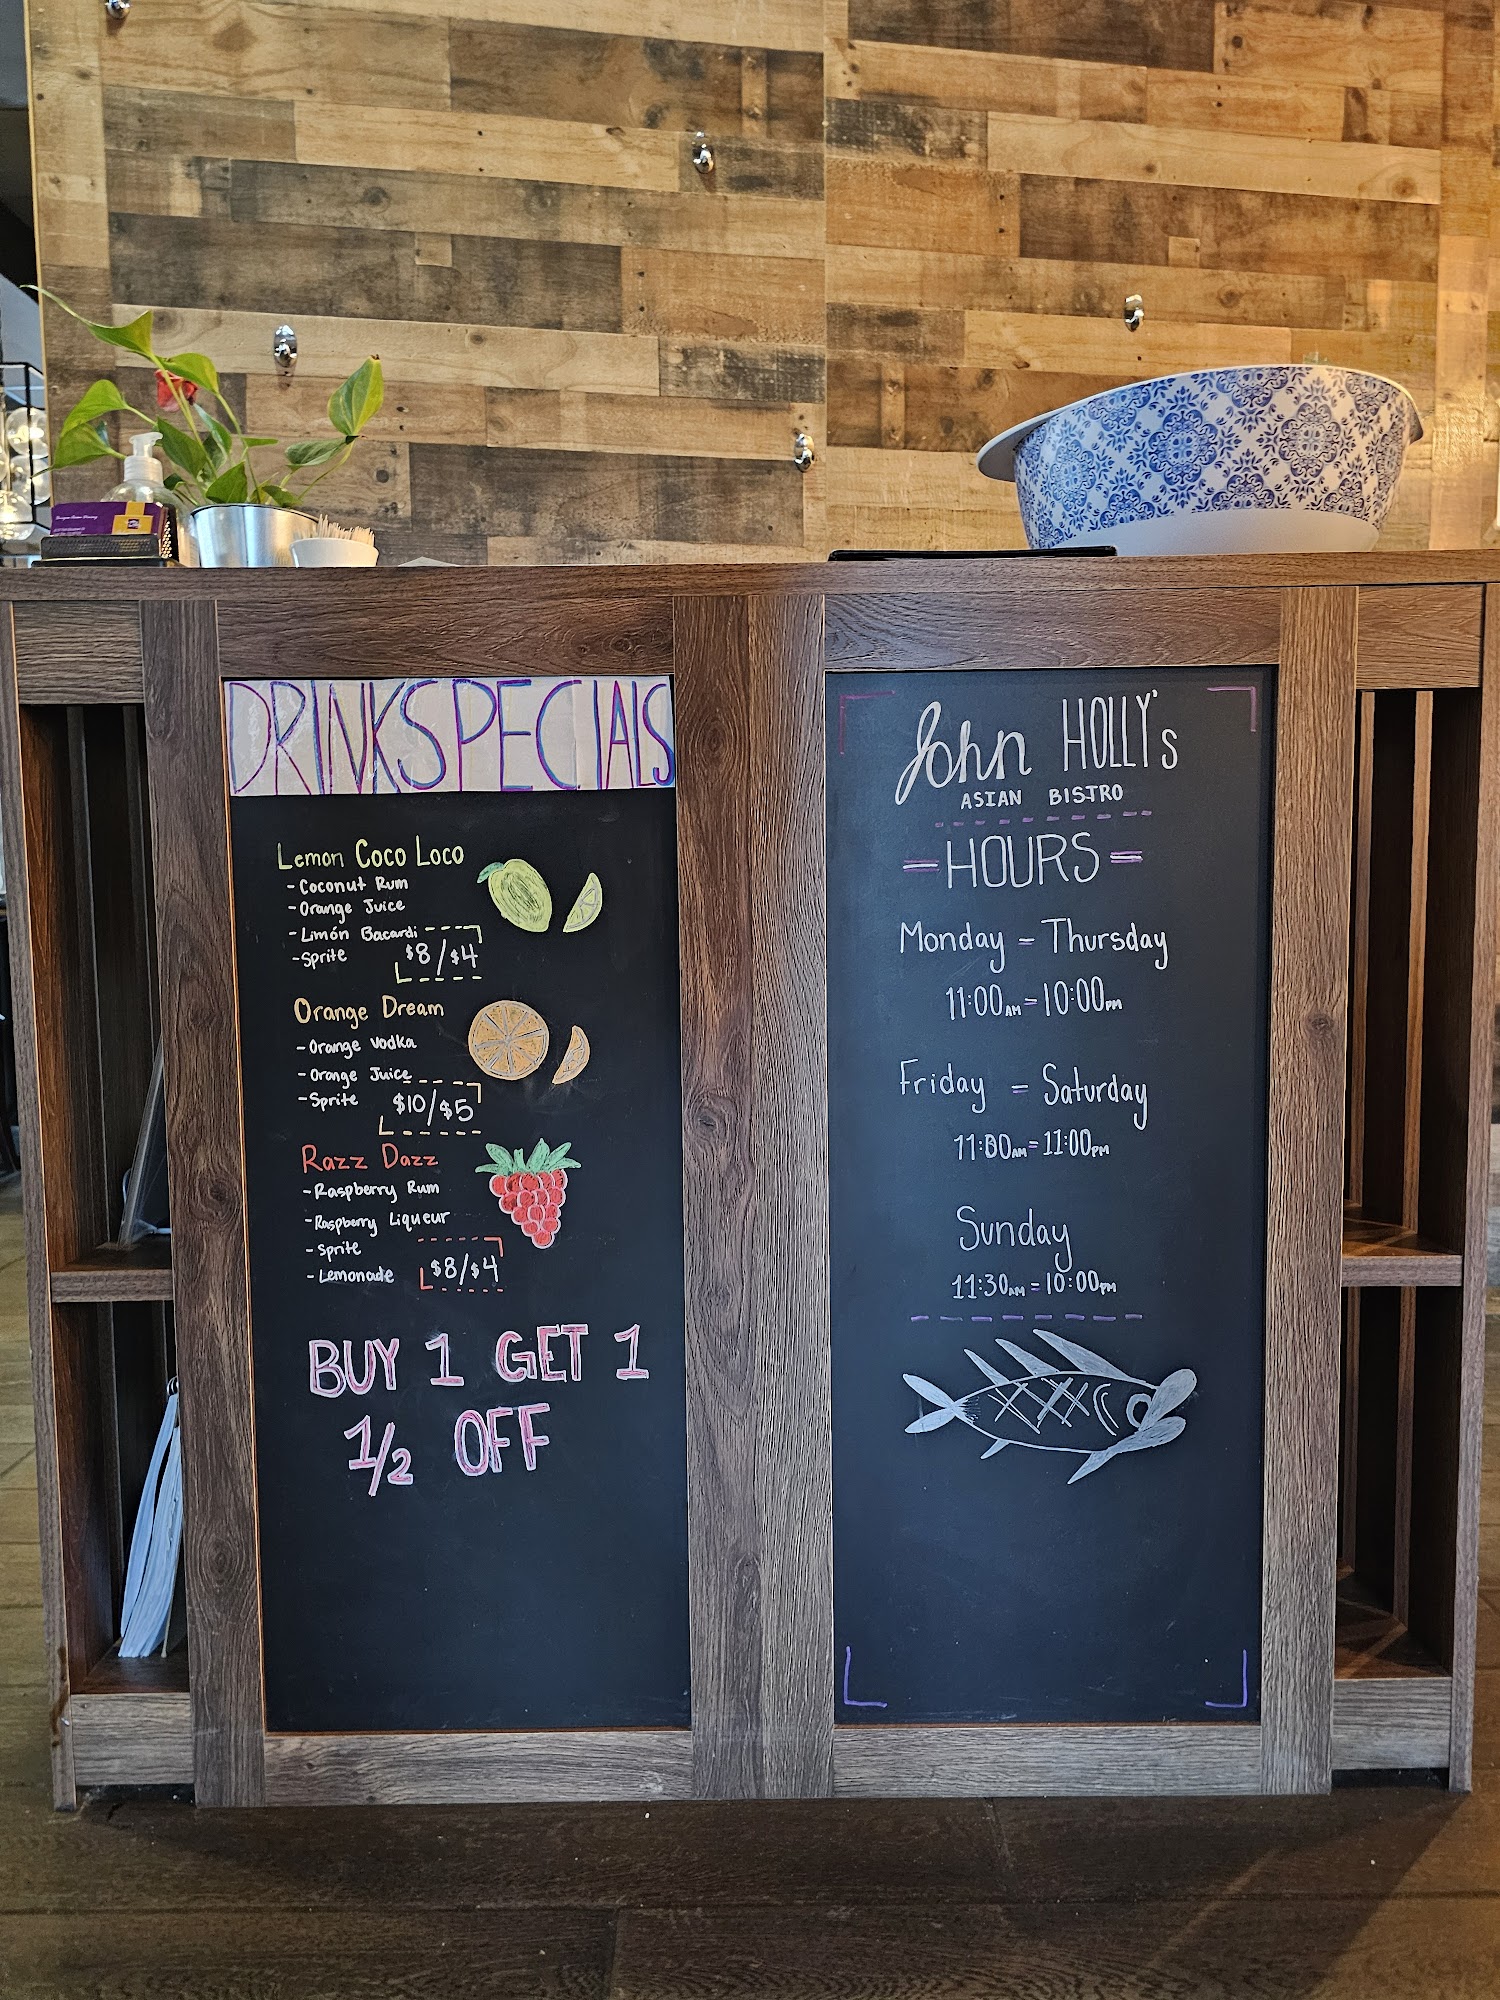 DRINK SPECIALS
Lemon Coco Loco
- Coconut Rum
- Orange Juice
- Limón Bacardi
- Sprite
$8/$4
Orange Dream
- Orange Vodka
- Orange Juice
- Sprite
$10/$5
Razz Dazz
- Raspberry Rum
- Raspberry Liqueur
- Sprite
- Lemonade
$8/$4
BUY 1 GET 1
1/2 OFF
John HOLLY's
ASIAN BISTRO
= HOURS =
Monday - Thursday
11:00AM - 10:00PM
Friday - Saturday
11:00AM - 11:00PM
Sunday
11:30AM - 10:00PM